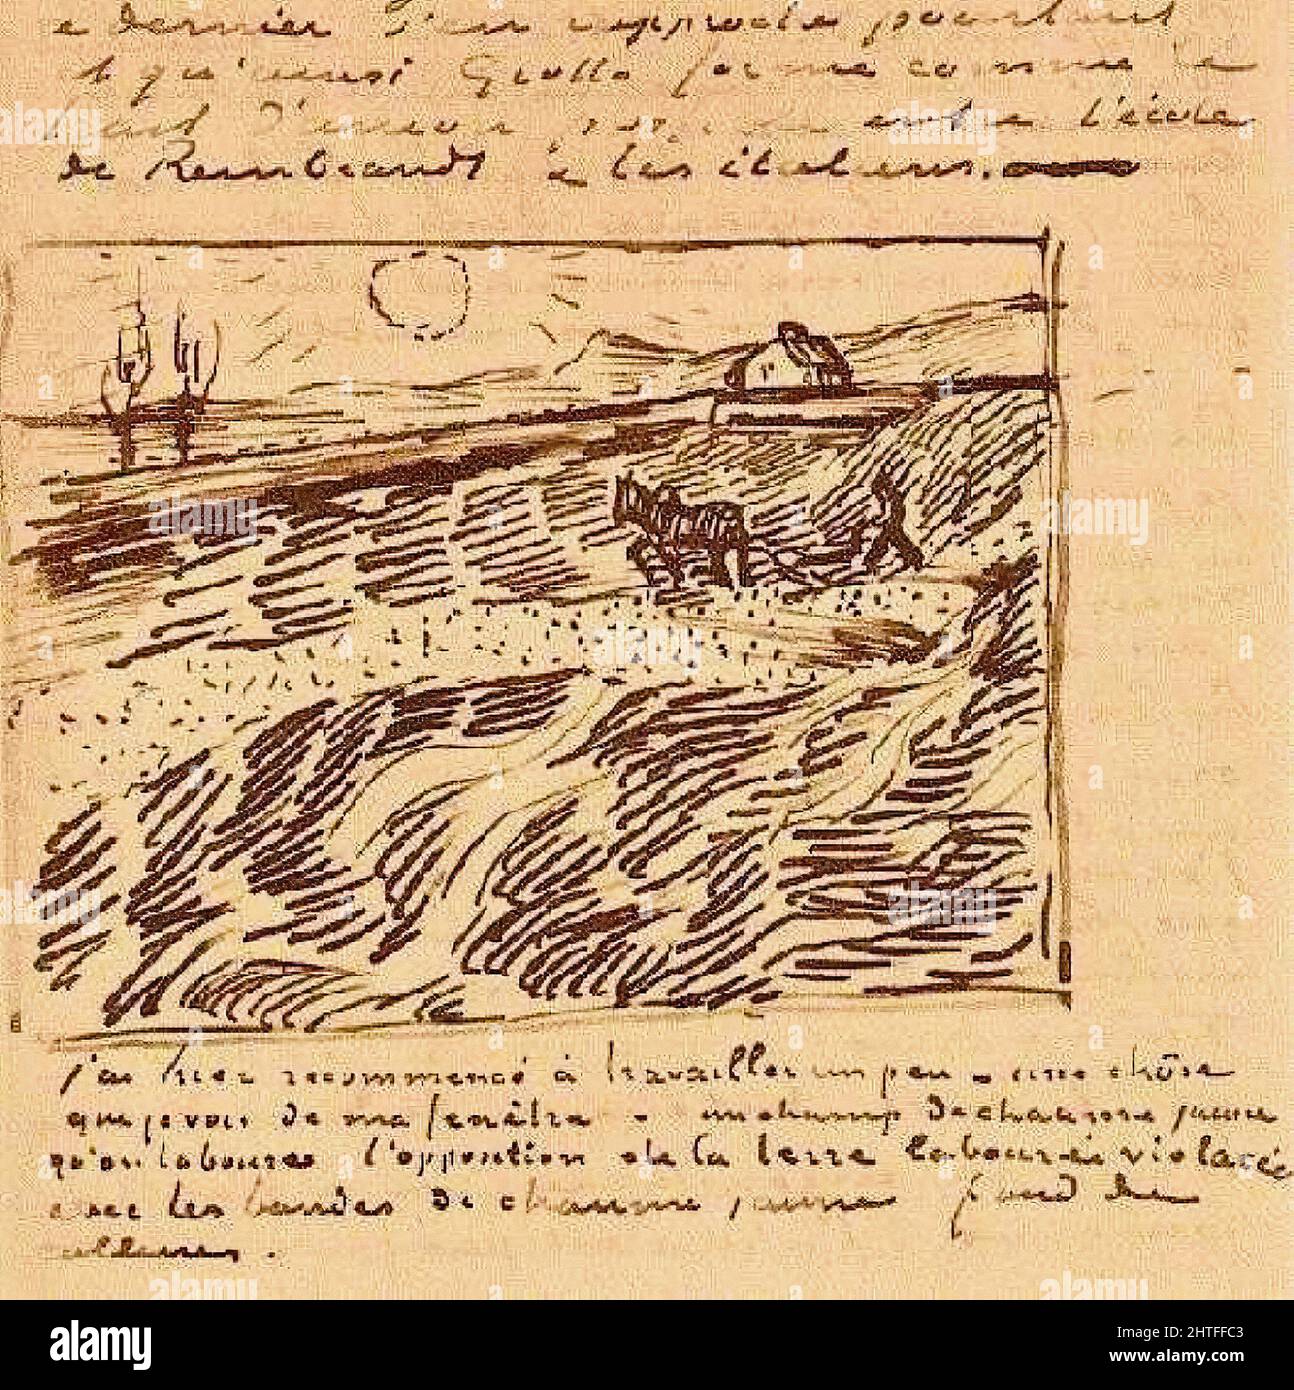 e dernier l'en rapproche pourtant
et qu'ainsi Giotto forme comme le
trait d'union entre l'école
de Rembrandt à les italiens.
j'ai hier recommencé à travailler un peu – une chôse
que je vois de ma fenêtre – un champ de chaume jaune
qu'on laboure l'opposition de la terre labourée violacée
avec les bandes de chaume jaune fond de
collines.
alamy
Image ID: 2HTFFC3
www.alamy.com